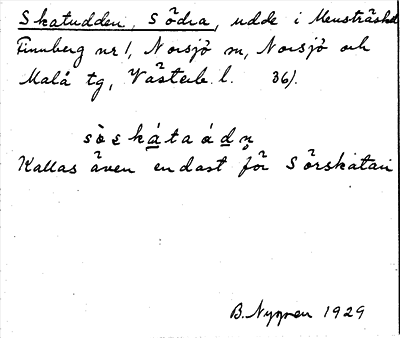 Skatudden, Södra, udde i Mensträsket
Finnberg nr 1, Norsjö sn, Norsjö och
Malå tg, Västerb. l. 36).
Kallas även endast för Sörskatan
B. Nygren 1929